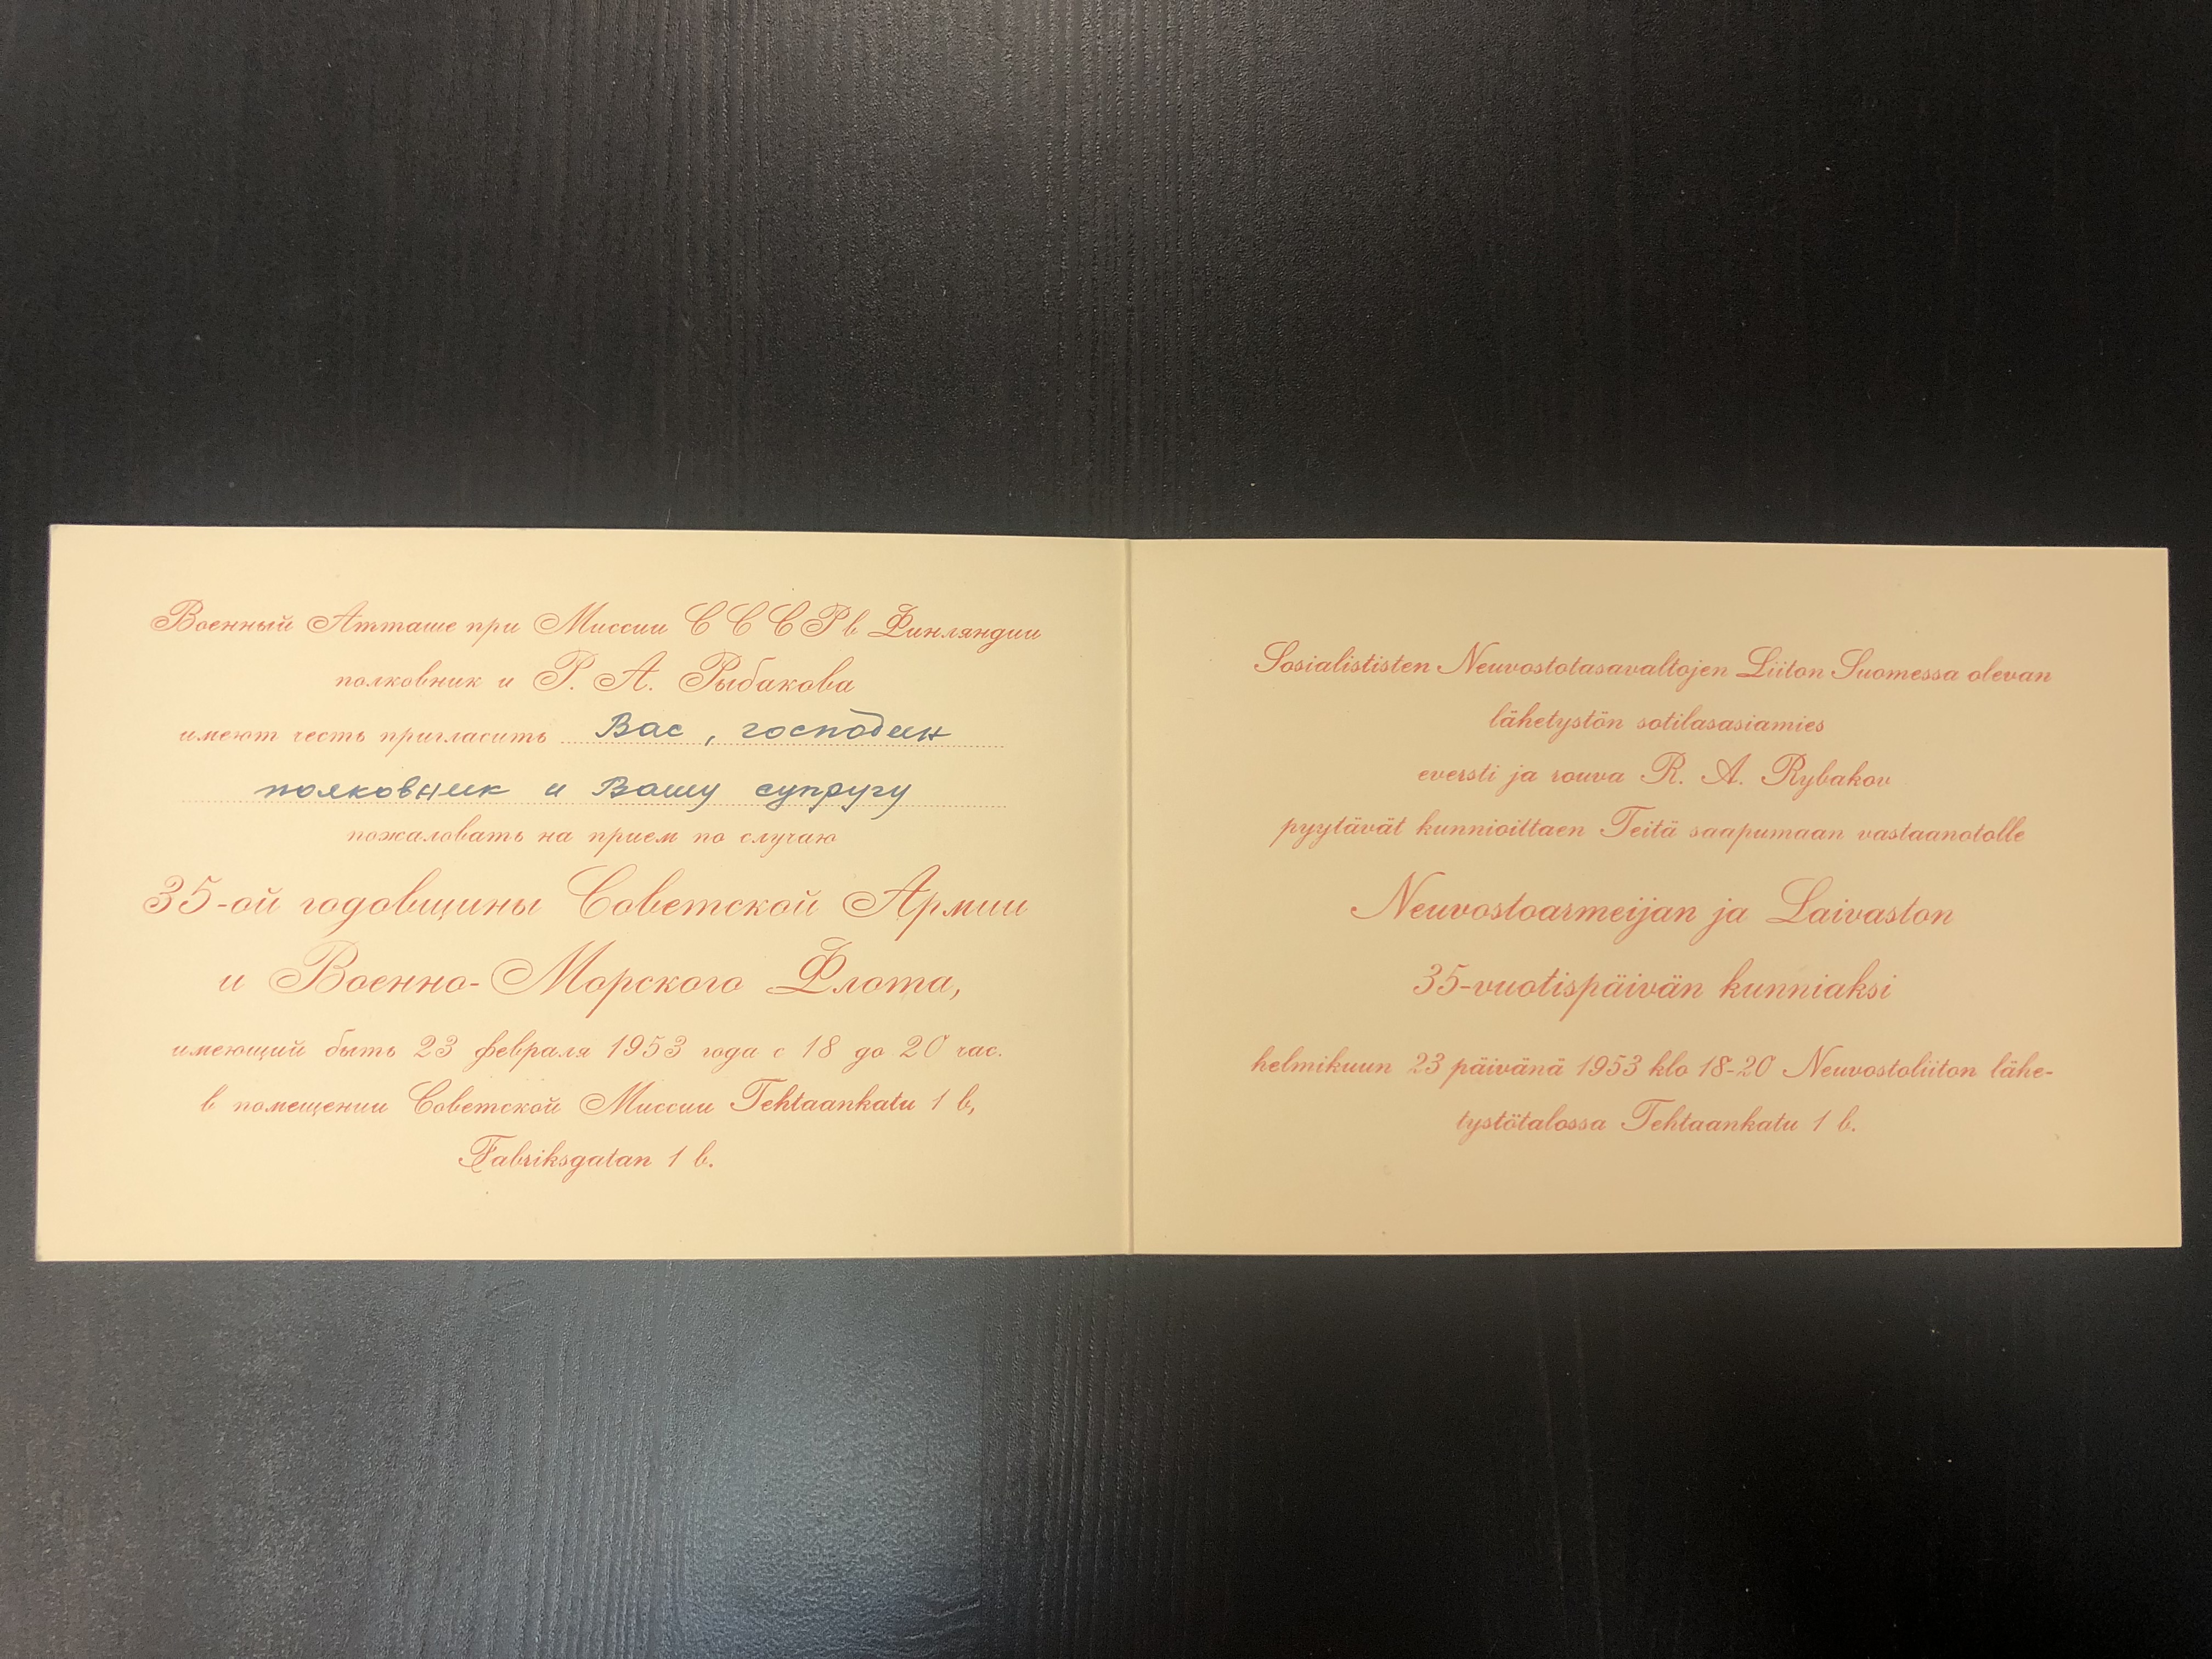 Военный Атташе при Миссии СССР в Финляндии
полковник и Р. А. Рыбакова
имеют честь пригласить Вас, господин
полковник и Вашу супругу
пожаловать на прием по случаю
35-ой годовщины Советской Армии
и Военно-Морского Флота,
имеющий быть 23 февраля 1953 года с 18 до 20 час.
в помещении Советской Миссии Tehtaankatu 1 b,
Fabriksgatan 1 b.
Sosialististen Neuvostotasavaltojen Liiton Suomessa olevan
lähetystön sotilasasiamies
eversti ja rouva R. A. Rybakov
pyytävät kunnioittaen Teitä saapumaan vastaanotolle
Neuvostoarmeijan ja Laivaston
35-vuotispäivän kunniaksi
helmikuun 23 päivänä 1953 klo 18-20 Neuvostoliiton lähe-
tystötalossa Tehtaankatu 1 b.